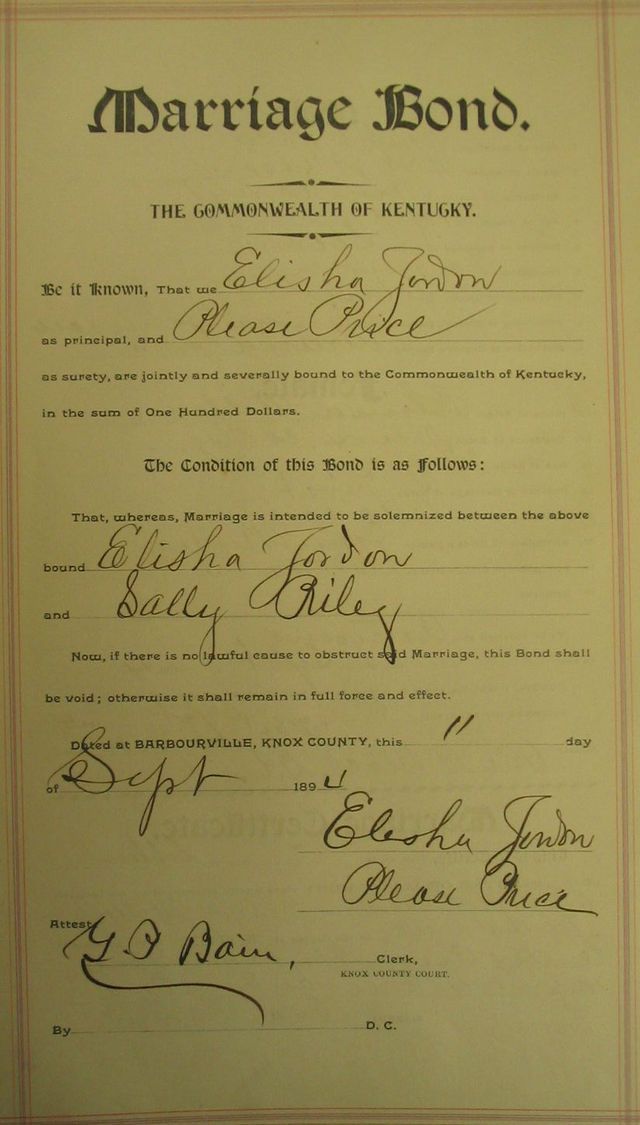 Marriage Bond.
THE COMMONWEALTH OF KENTUCKY.
Be it Known, That we Elisha Jordon
as principal, and Please Price
as surety, are jointly and severally bound to the Commonwealth of Kentucky,
in the sum of One Hundred Dollars.
The Condition of this Bond is as Follows:
That, whereas, Marriage is intended to be solemnized between the above
bound Elisha Jordon
and Sally Riley
Now, if there is no lawful cause to obstruct said Marriage, this Bond shall
be void; otherwise it shall remain in full force and effect.
Dated at BARBOURVILLE, KNOX COUNTY, this 11 day
of Sept 1894
Elisha Jordon
Please Price
Attest
G. P Bain, Clerk,
KNOX COUNTY COURT.
By D. C.